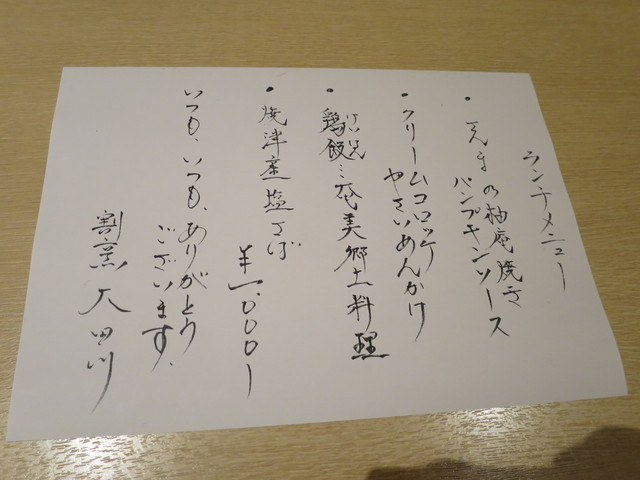 ランチメニュー
・さんまの柚庵焼き
パンプキンソース
・クリームコロッケ
やさいあんかけ
・鶏飯…奄美郷土料理
けいはん
・焼津産塩さば
¥1,000-
いつも、いつも、ありがとう
ございます。
割烹 大田川